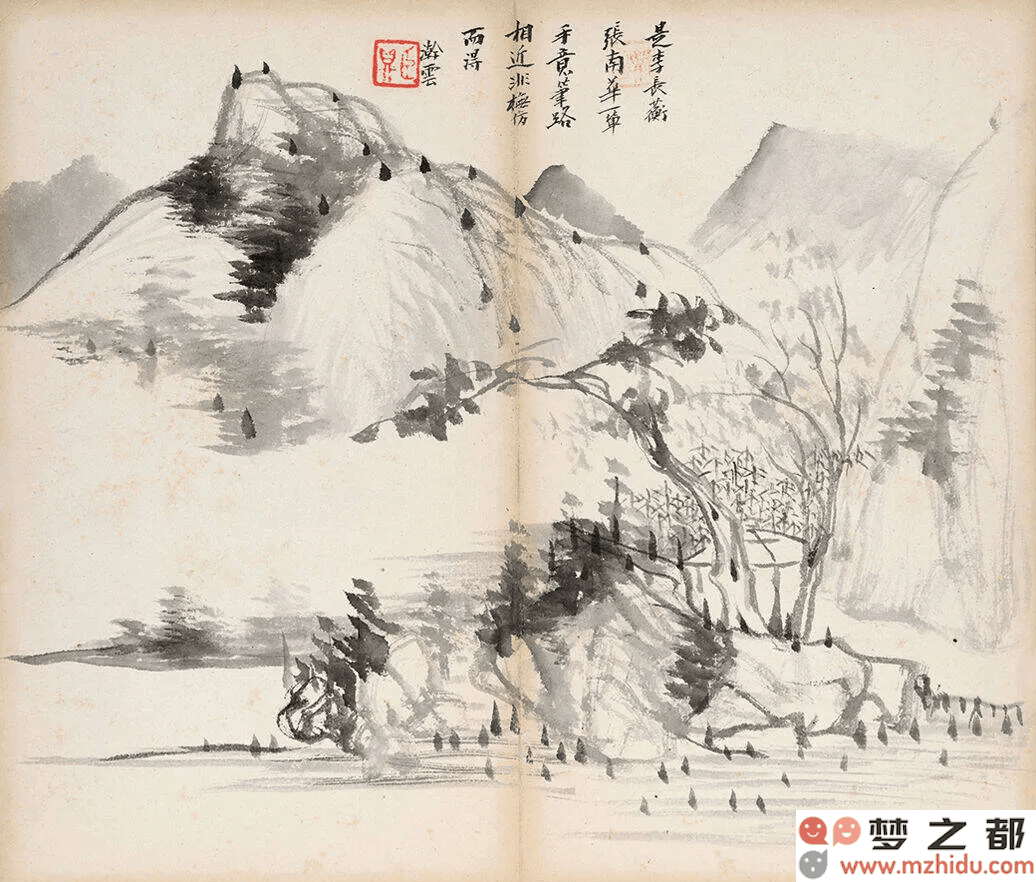 是李長蘅
張南華一輩
手意筆路
相近非橅仿
而得
瀞雲
梦之都
www.mzhidu.com